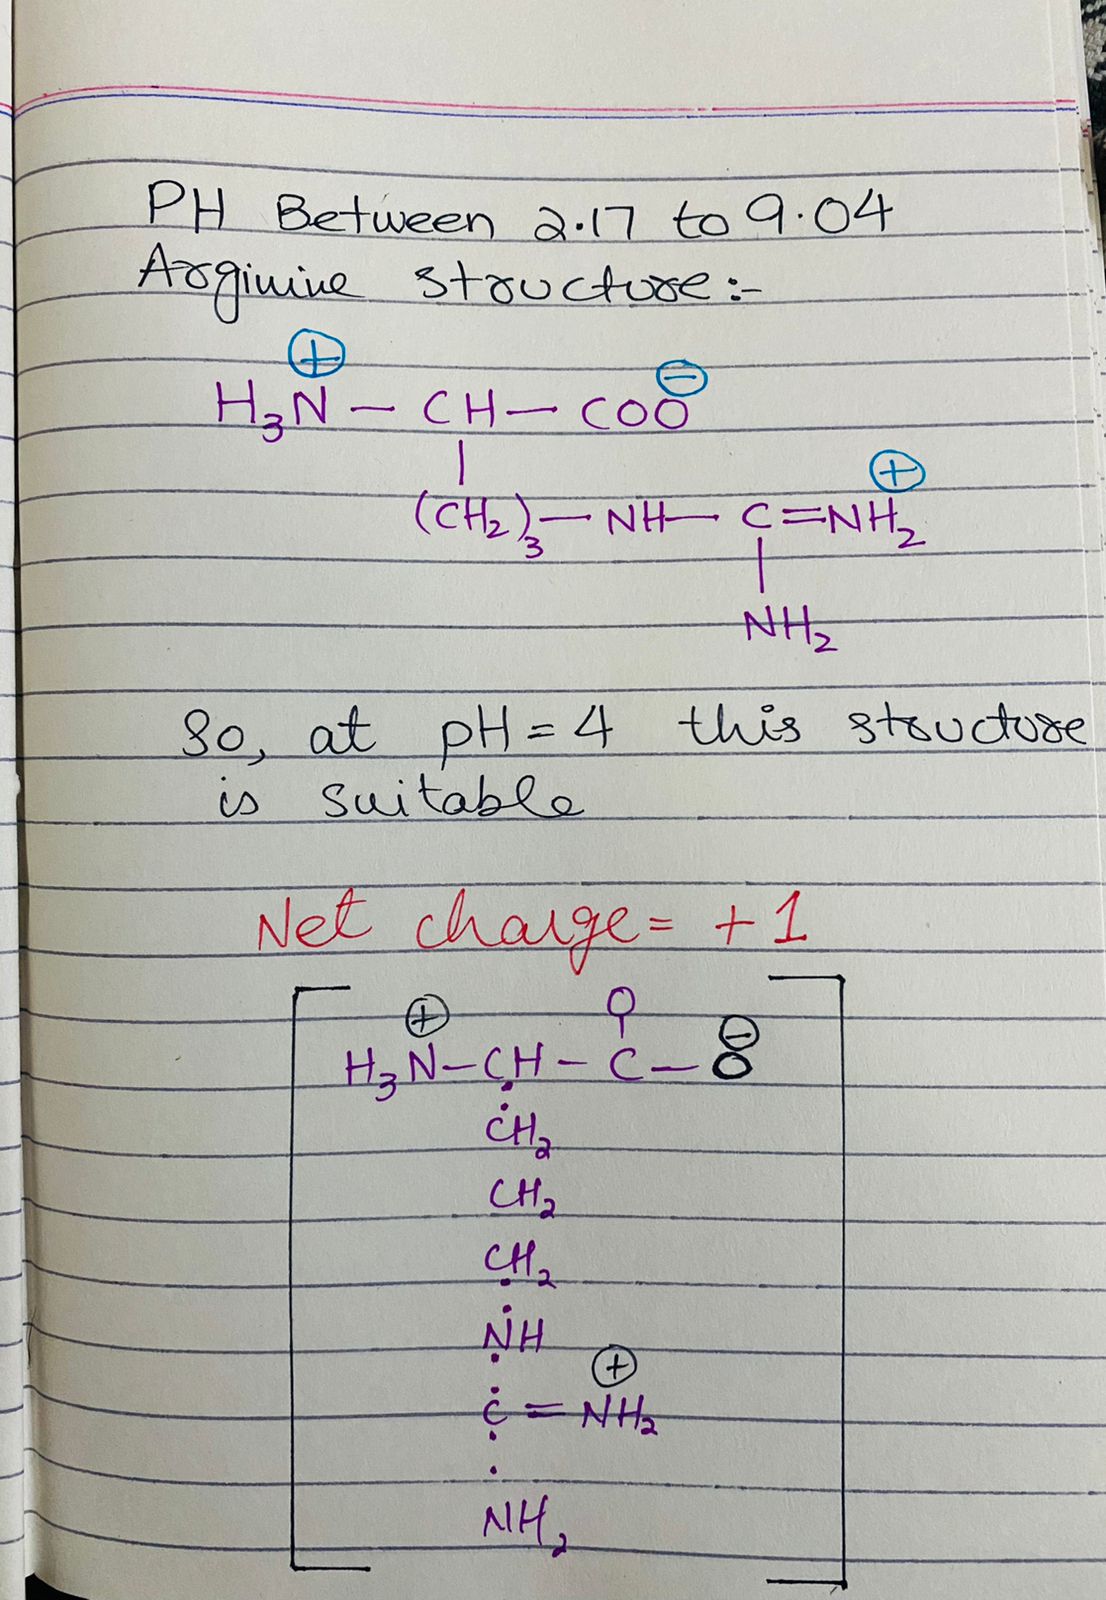 PH Between 2.17 to 9.04
Arginine structure:-
⊕ ⊖
H₃N — CH — COO
| ⊕
(CH₂)₃ — NH — C = NH₂
|
NH₂
So, at pH = 4 this structure
is suitable
Net charge = + 1
⊕ O ⊖
H₃N — CH — C — O
CH₂
CH₂
CH₂
NH
⊕
C = NH₂
NH₂